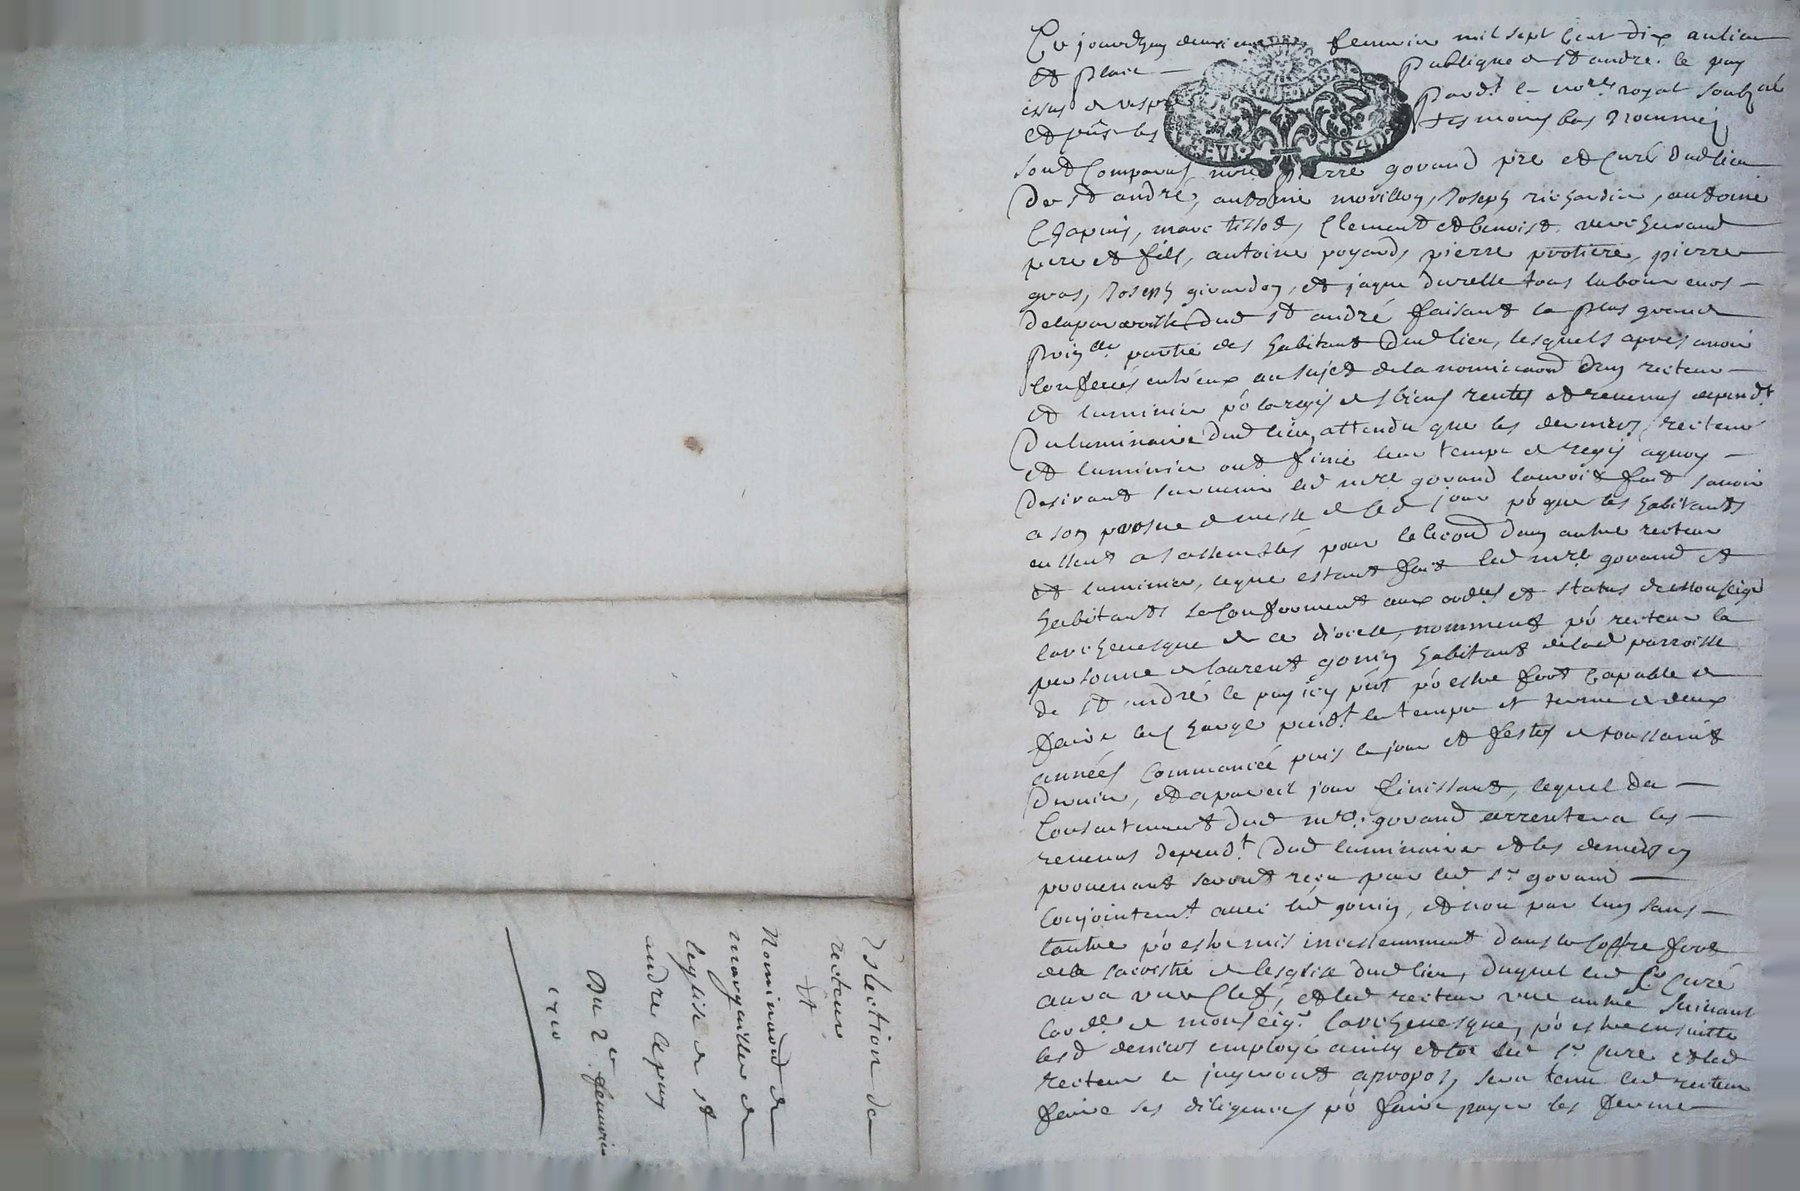 Ce jourdhuy deuxieme feuvrier mil sept cent dix au lieu
et place publique de st andré le puy
issus de vespre pardt le nore royal soubzné
et pnts les tesmoins bas nommés
sont comparus mre pierre govand pre et curé dud lieu
de st andré, antoine movillon, Joseph richardier, antoine
Chapuis, marc tissot, Clement et benoist
pere et fils, antoine poyard, pierre protiere, pierre
gras, Joseph girardon, et jaque durelle tous laboureurs
de la parroisse dud st andré faisant la plus grand
partie des habitants dud lieu, lesquels après avoir
conferés entreux au sujet de la nominaon d'un recteur
et luminier po la regis des biens rentes et revenus depandt
du luminaire dud lieu, attendu que les derniers recteur
et luminier ont finie leur temps de regis a quoy
desirant survenir led mre govand lauroit fait savoir
a son prosne de messe de ce d jour po que les habitants
eussent a s'assemblés pour d'un autre recteur
et luminier, ce que estant fait led mre govand et
habitants se conformant aux ordes et status de monseigr
larchevesque de ce diocese, nomment po recteur la
personne de laurent gonin habitant de lad parroisse
de st andré le puy icy pnt po estre fort capable de
faire lad charge pendt le temps et terme de deux
années commancé puis le jour et festes de toussaint
dernier, et a pareil jour finissant, lequel du
consentement dud mre govand arrentera les
revenus depandt dud luminaire et les deniers en
provenant seront receu par led sr govand
conjointemt avec led gonin, et non par lun sans
lautre po estre mis incessemment dans le coffre fort
de la sacristie de lesglise dud lieu, duquel led sr curé
aura une clef, et led recteur une autre suivant
lordce de monseigr larchevesque, po estre ensuitte
lesd deniers employé ainsy et led sr curé et led
recteur le jugeront apropos, sera tenu led recteur
faire ses diligences po faire payer les ferme
Eslection de
recteur
et
Nominaond de
marguillier de
leglise de st
andre le puy
Du 2e feuvrier
1710